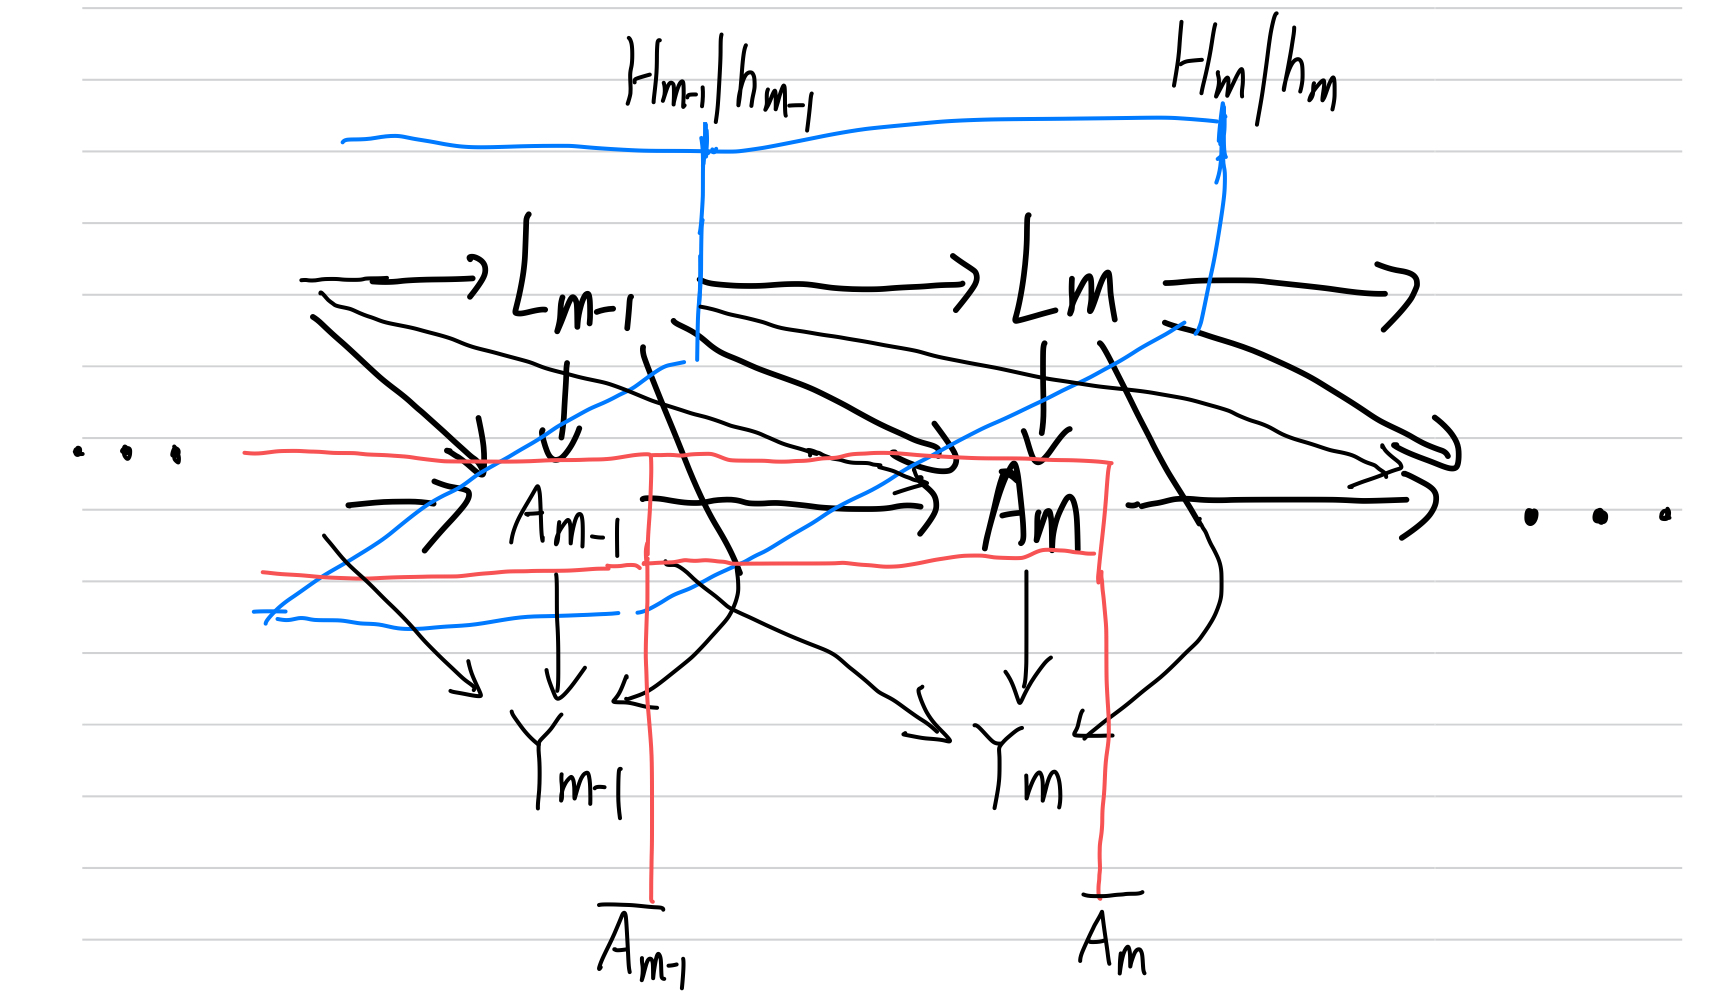 H_{m-1}/h_{m-1} H_m/h_m
L_{m-1} L_m
... A_{m-1} A_m ...
Y_{m-1} Y_m
\overline{A}_{m-1} \overline{A}_m